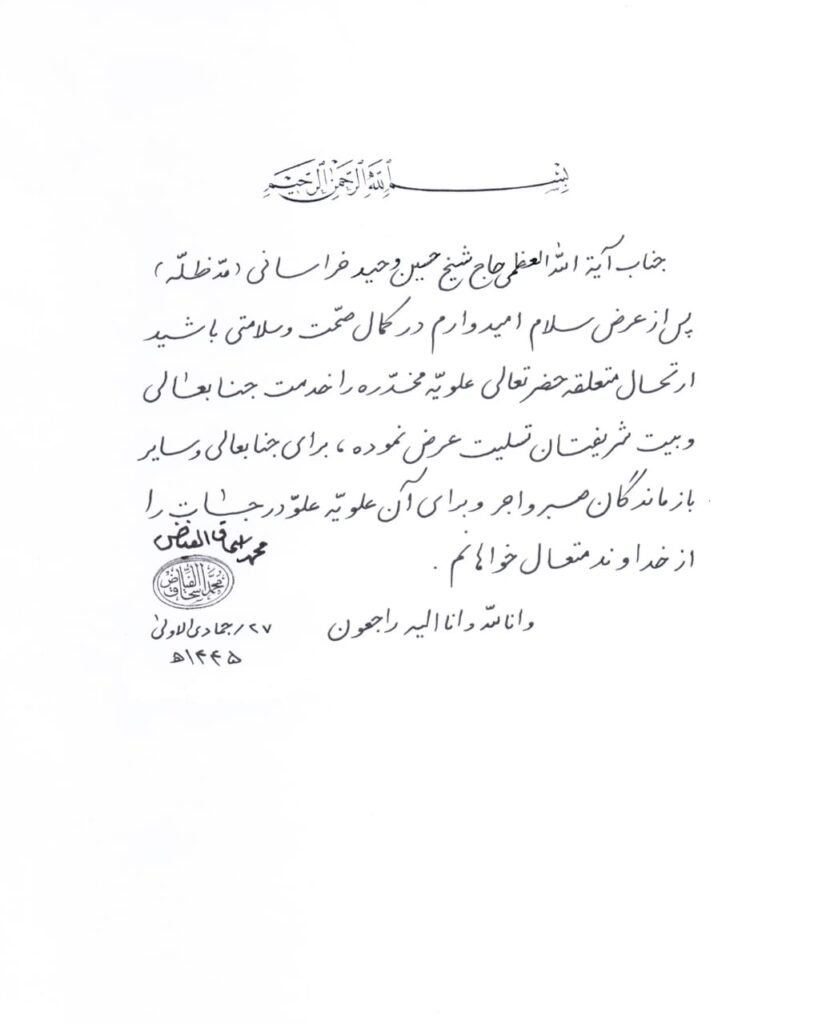 بسم الله الرحمن الرحیم
جناب آیة الله العظمی حاج شیخ حسین وحید خراسانی (مدّ ظلّه)
پس از عرض سلام امیدوارم در کمال صحّت و سلامتی باشید
ارتحال متعلقه حضرتعالی علویّه مخدّره را خدمت جنابعالی
و بیت شریفتان تسلیت عرض نموده ، برای جنابعالی و سایر
بازماندگان صبر و اجر و برای آن علویّه علوّ درجات را
از خداوند متعال خواهانم .
محمد اسحاق الفیاض
محمد اسحاق الفیاض
وانا لله وانا الیه راجعون
۲۷ / جمادی الاولی
۱۴۴۵ه